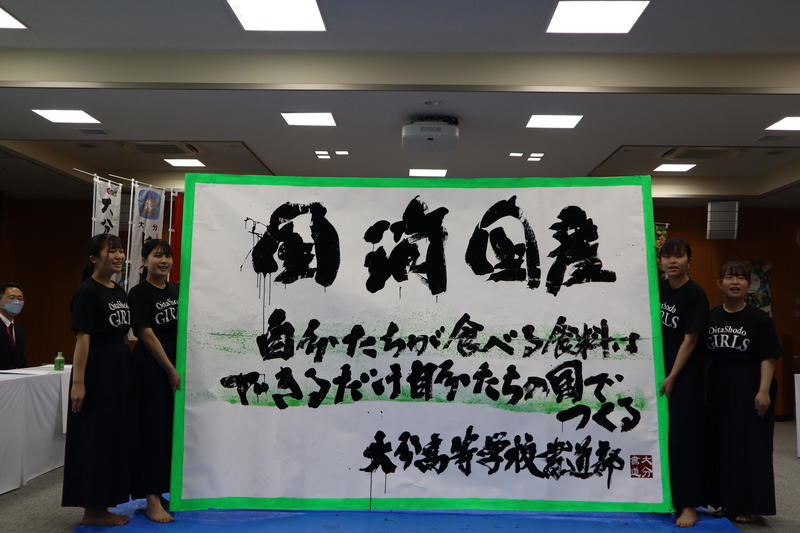 国消国産
自分たちが食べる食料は
できるだけ自分たちの国で
つくる
大分高等学校書道部
大分
書道
EPSON
OitaShodo
GIRLS
OitaShodo
GIRLS
OitaShodo
GIRLS
大分